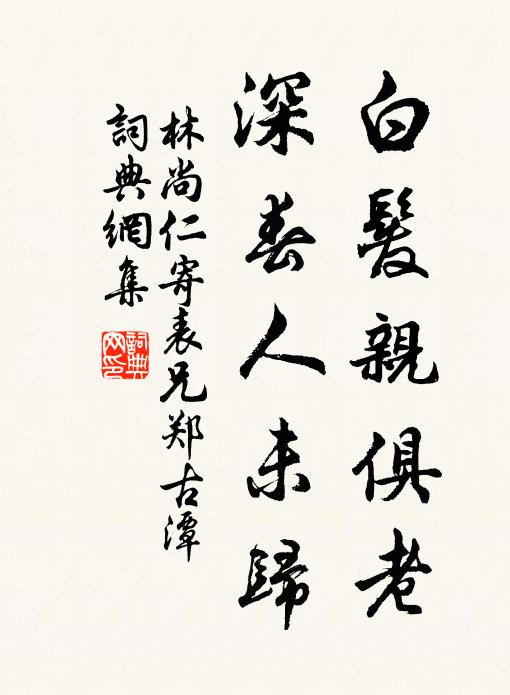 白髮親俱老
深春人未歸
林尚仁寄表兄郑古潭
詞典網集
詞典网印